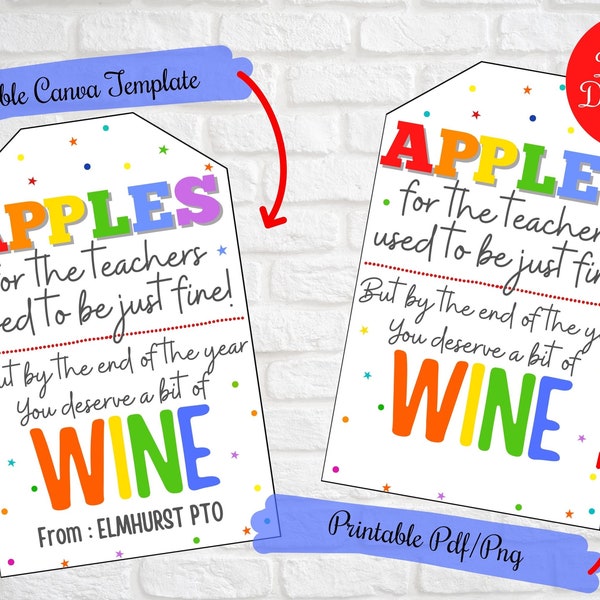 Canva Template
APPLES
for the teachers
used to be just fine!
But by the end of the year
You deserve a bit of
WINE
From : ELMHURST PTO
APPLES
for the teachers
used to be just
But by the end of the
You deserve a bit of
WINE
Printable Pdf/Png